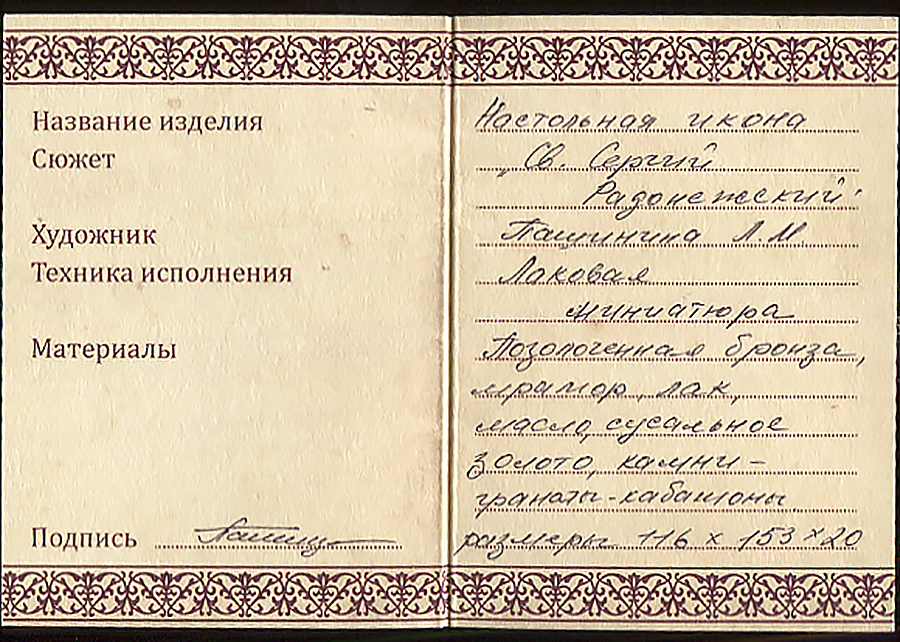 Название изделия Настольная икона
Сюжет „Св. Сергий
Радонежский"
Художник Пашинина Л.М.
Техника исполнения Лаковая
миниатюра
Материалы Позолоченная бронза,
мрамор, лак,
масло, сусальное
золото, камни –
гранаты-кабашоны.
Подпись размеры 116 х 153 х 20